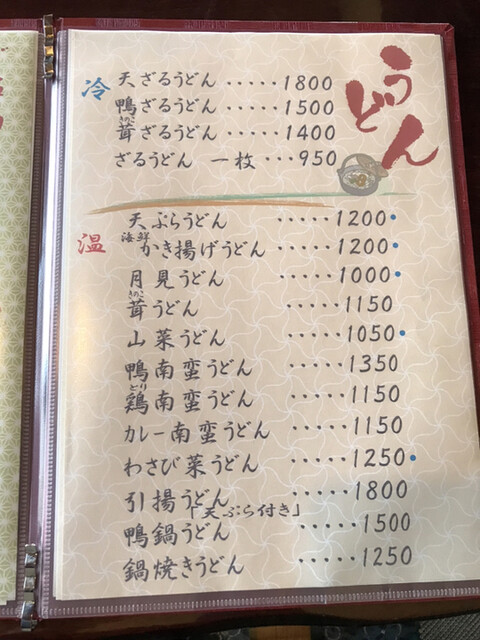 うどん
冷
天ざるうどん ・・・・・1800
鴨ざるうどん ・・・・・1500
茸きのこざるうどん ・・・・・1400
ざるうどん 一枚・・・950
温
天ぷらうどん ・・・・・1200・
海鮮かき揚げうどん ・・・・・1200・
月見うどん ・・・・・1000・
茸きのこうどん ・・・・・1150
山菜うどん ・・・・・1050・
鴨南蛮うどん ・・・・・1350
鶏とり南蛮うどん ・・・・・1150
カレー南蛮うどん ・・・・・1150
わさび菜うどん ・・・・・1250・
引揚うどん ・・・・・1800
「天ぷら付き」
鴨鍋うどん ・・・・・1500
鍋焼きうどん ・・・・・1250